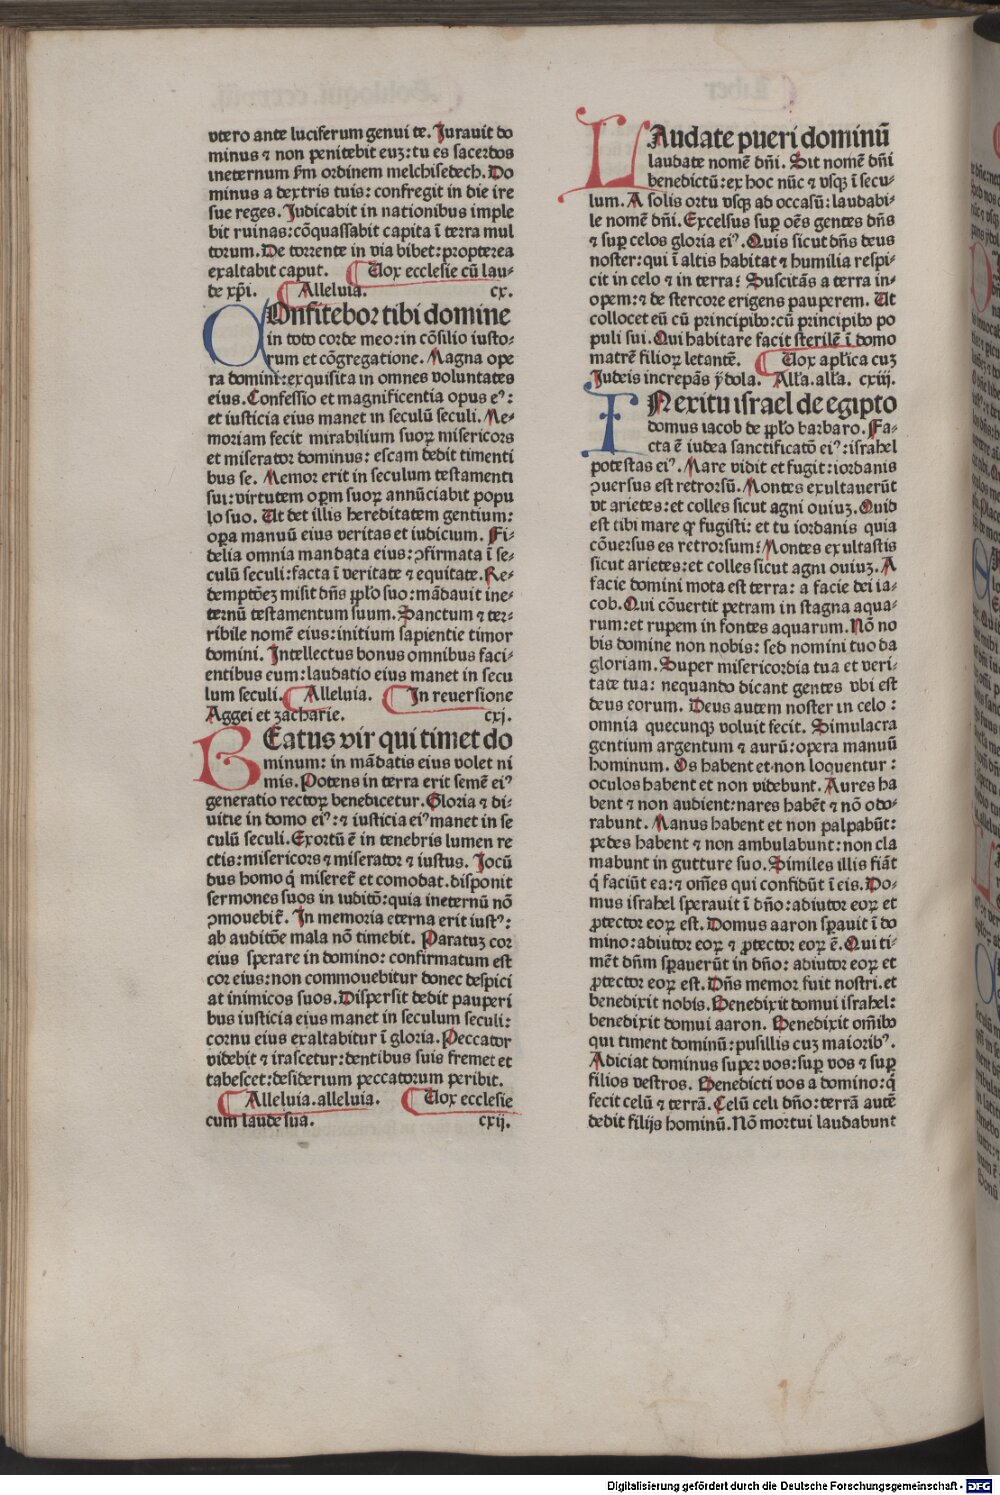 vtero ante luciferum genui te. Jurauit do
minus ⁊ non penitebit euʒ: tu es sacerdos
ineternum ẜm ordinem melchisedech. Do
minus a dextris tuis: confregit in die ire
sue reges. Judicabit in nationibus imple
bit ruinas: cõquassabit capita ĩ terra mul
torum. De torrente in via bibet: propterea
exaltabit caput. Uox ecclesie cũ lau⸗
de xp̃i. Alleluia. cx.
COnfitebor tibi domine
in toto corde meo: in cõsilio iusto⸗
rum et cõgregatione. Magna ope
ra domini: exquisita in omnes voluntates
eius. Confessio et magnificentia opus eꝰ:
et iusticia eius manet in seculũ seculi. Me⸗
moriam fecit mirabilium suoꝝ misericors
et miserator dominus: escam dedit timenti
bus se. Memor erit in seculum testamenti
sui: virtutem oꝑm suoꝝ annũciabit popu
lo suo. Ut det illis hereditatem gentium:
oꝑa manuũ eius veritas et iudicium. Fi⸗
delia omnia mandata eius: ꝯfirmata ĩ se⸗
culũ seculi: facta ĩ veritate ⁊ equitate. Re⸗
demptõeʒ misit dñs ꝓplo suo: mãdauit ine⸗
ternũ testamentum suum. Sanctum ⁊ ter⸗
ribile nomẽ eius: initium sapientie timor
domini. Intellectus bonus omnibus faci⸗
entibus eum: laudatio eius manet in secu
lum seculi. Alleluia. In reuersione
Aggei et zacharie. cxj.
BEatus vir qui timet do
minum: in mãdatis eius volet ni
mis. Potens in terra erit semẽ eiꝰ
generatio rectoꝝ benedicetur. Gloria ⁊ di⸗
uitie in domo eiꝰ: ⁊ iusticia eiꝰ manet in se
culũ seculi. Exortũ ẽ in tenebris lumen re
ctis: misericors ⁊ miserator ⁊ iustus. Jocũ
dus homo q̃ miseret̃ et comodat. disponit
sermones suos in iuditõ: quia ineternũ nõ
ꝯmouebit̃. In memoria eterna erit iustꝰ:
ab auditõe mala nõ timebit. Paratuʒ cor
eius sperare in domino: confirmatum est
cor eius: non commouebitur donec despici
at inimicos suos. Dispersit dedit pauperi
bus iusticia eius manet in seculum seculi:
cornu eius exaltabitur ĩ gloria. Peccator
videbit ⁊ irascetur: dentibus suis fremet et
tabescet: desiderium peccatorum peribit.
Alleluia. alleluia. Uox ecclesie
cum laude sua. cxij.
LAudate pueri dominũ
laudate nomẽ dñi. Sit nomẽ dñi
benedictũ: ex hoc nũc ⁊ vsqꝫ ĩ secu⸗
lum. A solis ortu vsqꝫ ad occasũ: laudabi⸗
le nomẽ dñi. Excelsus suꝑ oẽs gentes dñs
⁊ suꝑ celos gloria eiꝰ. Quis sicut dñs deus
noster: qui ĩ altis habitat ⁊ humilia respi⸗
cit in celo ⁊ in terra? Suscitãs a terra in⸗
opem: ⁊ de stercore erigens pauperem. Ut
collocet eũ cũ principibꝰ: cũ principibꝰ po
puli sui. Qui habitare facit sterilẽ ĩ domo
matrẽ filioꝝ letantẽ. Uox apl̃ica cuʒ
Judeis increpãs ydola. All̃a. all̃a. cxiij.
IN exitu israel de egipto
domus iacob de ꝓplo barbaro. Fa⸗
cta ẽ iudea sanctificatõ eiꝰ: israhel
potestas eiꝰ. Mare vidit et fugit: iordanis
ꝯuersus est retrorsũ. Montes exultauerũt
vt arietes: et colles sicut agni ouiuʒ. Quid
est tibi mare qꝛ fugisti: et tu iordanis quia
cõuersus es retrorsum? Montes exultastis
sicut arietes: et colles sicut agni ouiuʒ. A
facie domini mota est terra: a facie dei ia⸗
cob. Qui cõuertit petram in stagna aqua⸗
rum: et rupem in fontes aquarum. Nõ no
bis domine non nobis: sed nomini tuo da
gloriam. Super misericordia tua et veri⸗
tate tua: nequando dicant gentes vbi est
deus eorum. Deus autem noster in celo:
omnia quecunqꝫ voluit fecit. Simulacra
gentium argentum ⁊ aurũ: opera manuũ
hominum. Os habent et non loquentur:
oculos habent et non videbunt. Aures ha
bent ⁊ non audient: nares habẽt ⁊ nõ odo⸗
rabunt. Manus habent et non palpabũt:
pedes habent ⁊ non ambulabunt: non cla
mabunt in gutture suo. Similes illis fiãt
q̃ faciũt ea: ⁊ om̃es qui confidũt ĩ eis. Do⸗
mus israhel sperauit ĩ dño: adiutor eoꝝ et
ꝓtector eoꝝ est. Domus aaron sꝑauit ĩ do
mino: adiutor eoꝝ ⁊ ꝓtector eoꝝ ẽ. Qui ti⸗
mẽt dñm sꝑauerũt in dño: adiutor eoꝝ et
ꝓtector eoꝝ est. Dñs memor fuit nostri. et
benedixit nobis. Benedixit domui israhel:
benedixit domui aaron. Benedixit om̃ibꝰ
qui timent dominũ: pusillis cuʒ maioribꝰ.
Adiciat dominus super vos: suꝑ vos ⁊ suꝑ
filios vestros. Benedicti vos a domino: q̃
fecit celũ ⁊ terrã. Celũ celi dño: terrã autẽ
dedit filijs hominũ. Nõ mortui laudabunt
Digitalisierung gefördert durch die Deutsche Forschungsgemeinschaft - DFG